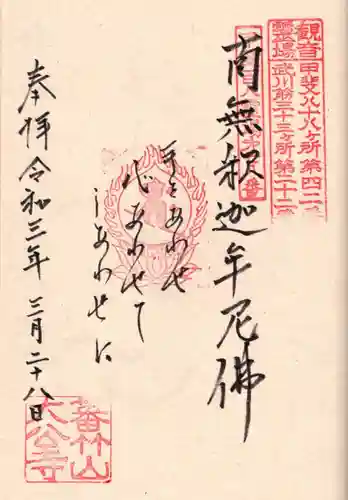 観音甲斐八十八ヶ所第四二
霊場武川筋三十三ヶ所第二十二
南無釈迦牟尼佛
手をあわせ
心あわせて
しあわせに
奉拝 令和三年 三月二十八日
番竹山
大公寺